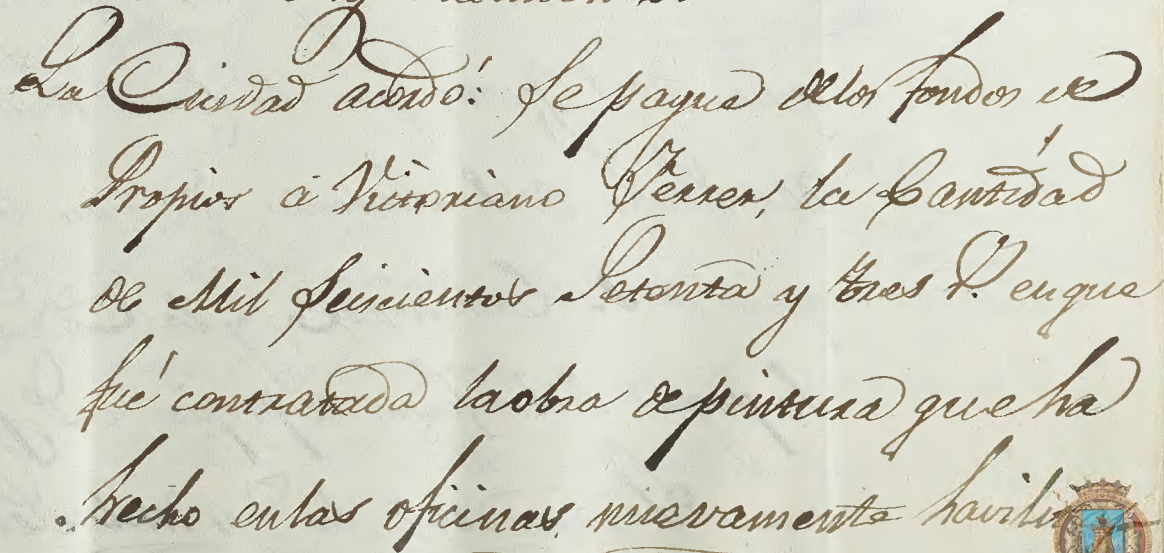 La Ciudad acordó: Se pague delos fondos de
Propios á Victoriano Ferrer, la Cantidad
de Mil Seiscientos Setenta y tres r.^s en que
fué contratada laobra depintura que ha
hecho enlas oficinas nuevamente havili